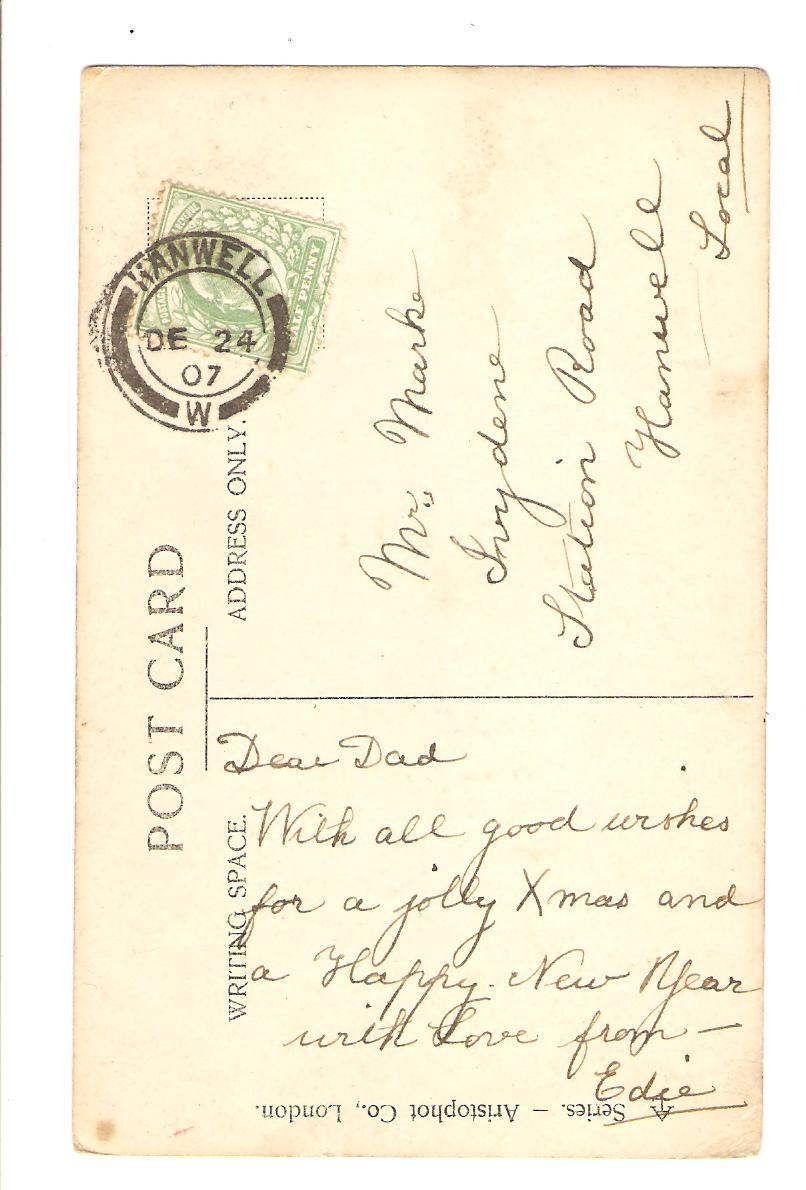 POST CARD
WRITING SPACE.
ADDRESS ONLY.
HANWELL
DE 24
07
W
HALF PENNY
Mr. Marke
Ivydene
Station Road
Hanwell
Local
Dear Dad
With all good wishes
for a jolly Xmas and
a Happy New Year
with Love from —
Edie
Series. – Aristophot Co., London.